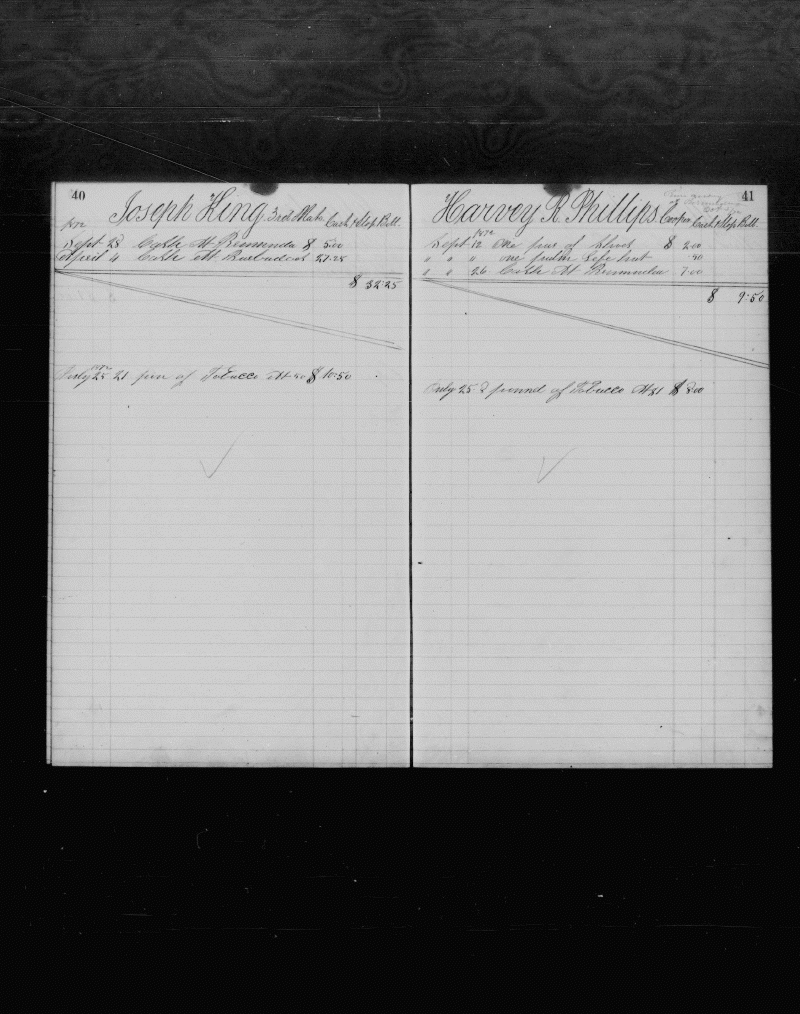 40
Joseph King. 3rd Mate. Cash & Slop Bill.
1872
Sept 28 Cash At Bermuda $ 5.00
April 4 Cash At Barbadoes 27.25
$ 32.25
July 25 21 of Tobacco At 50 $ 10.50
41
Harvey R Phillips Cooper Cash & Slop Bill.
1872
Sept 12 One pair of Shoes $ 2.00
" " " one
" " 26 Cash At Bermuda 7.00
$ 9.50
July 25 of Tobacco At